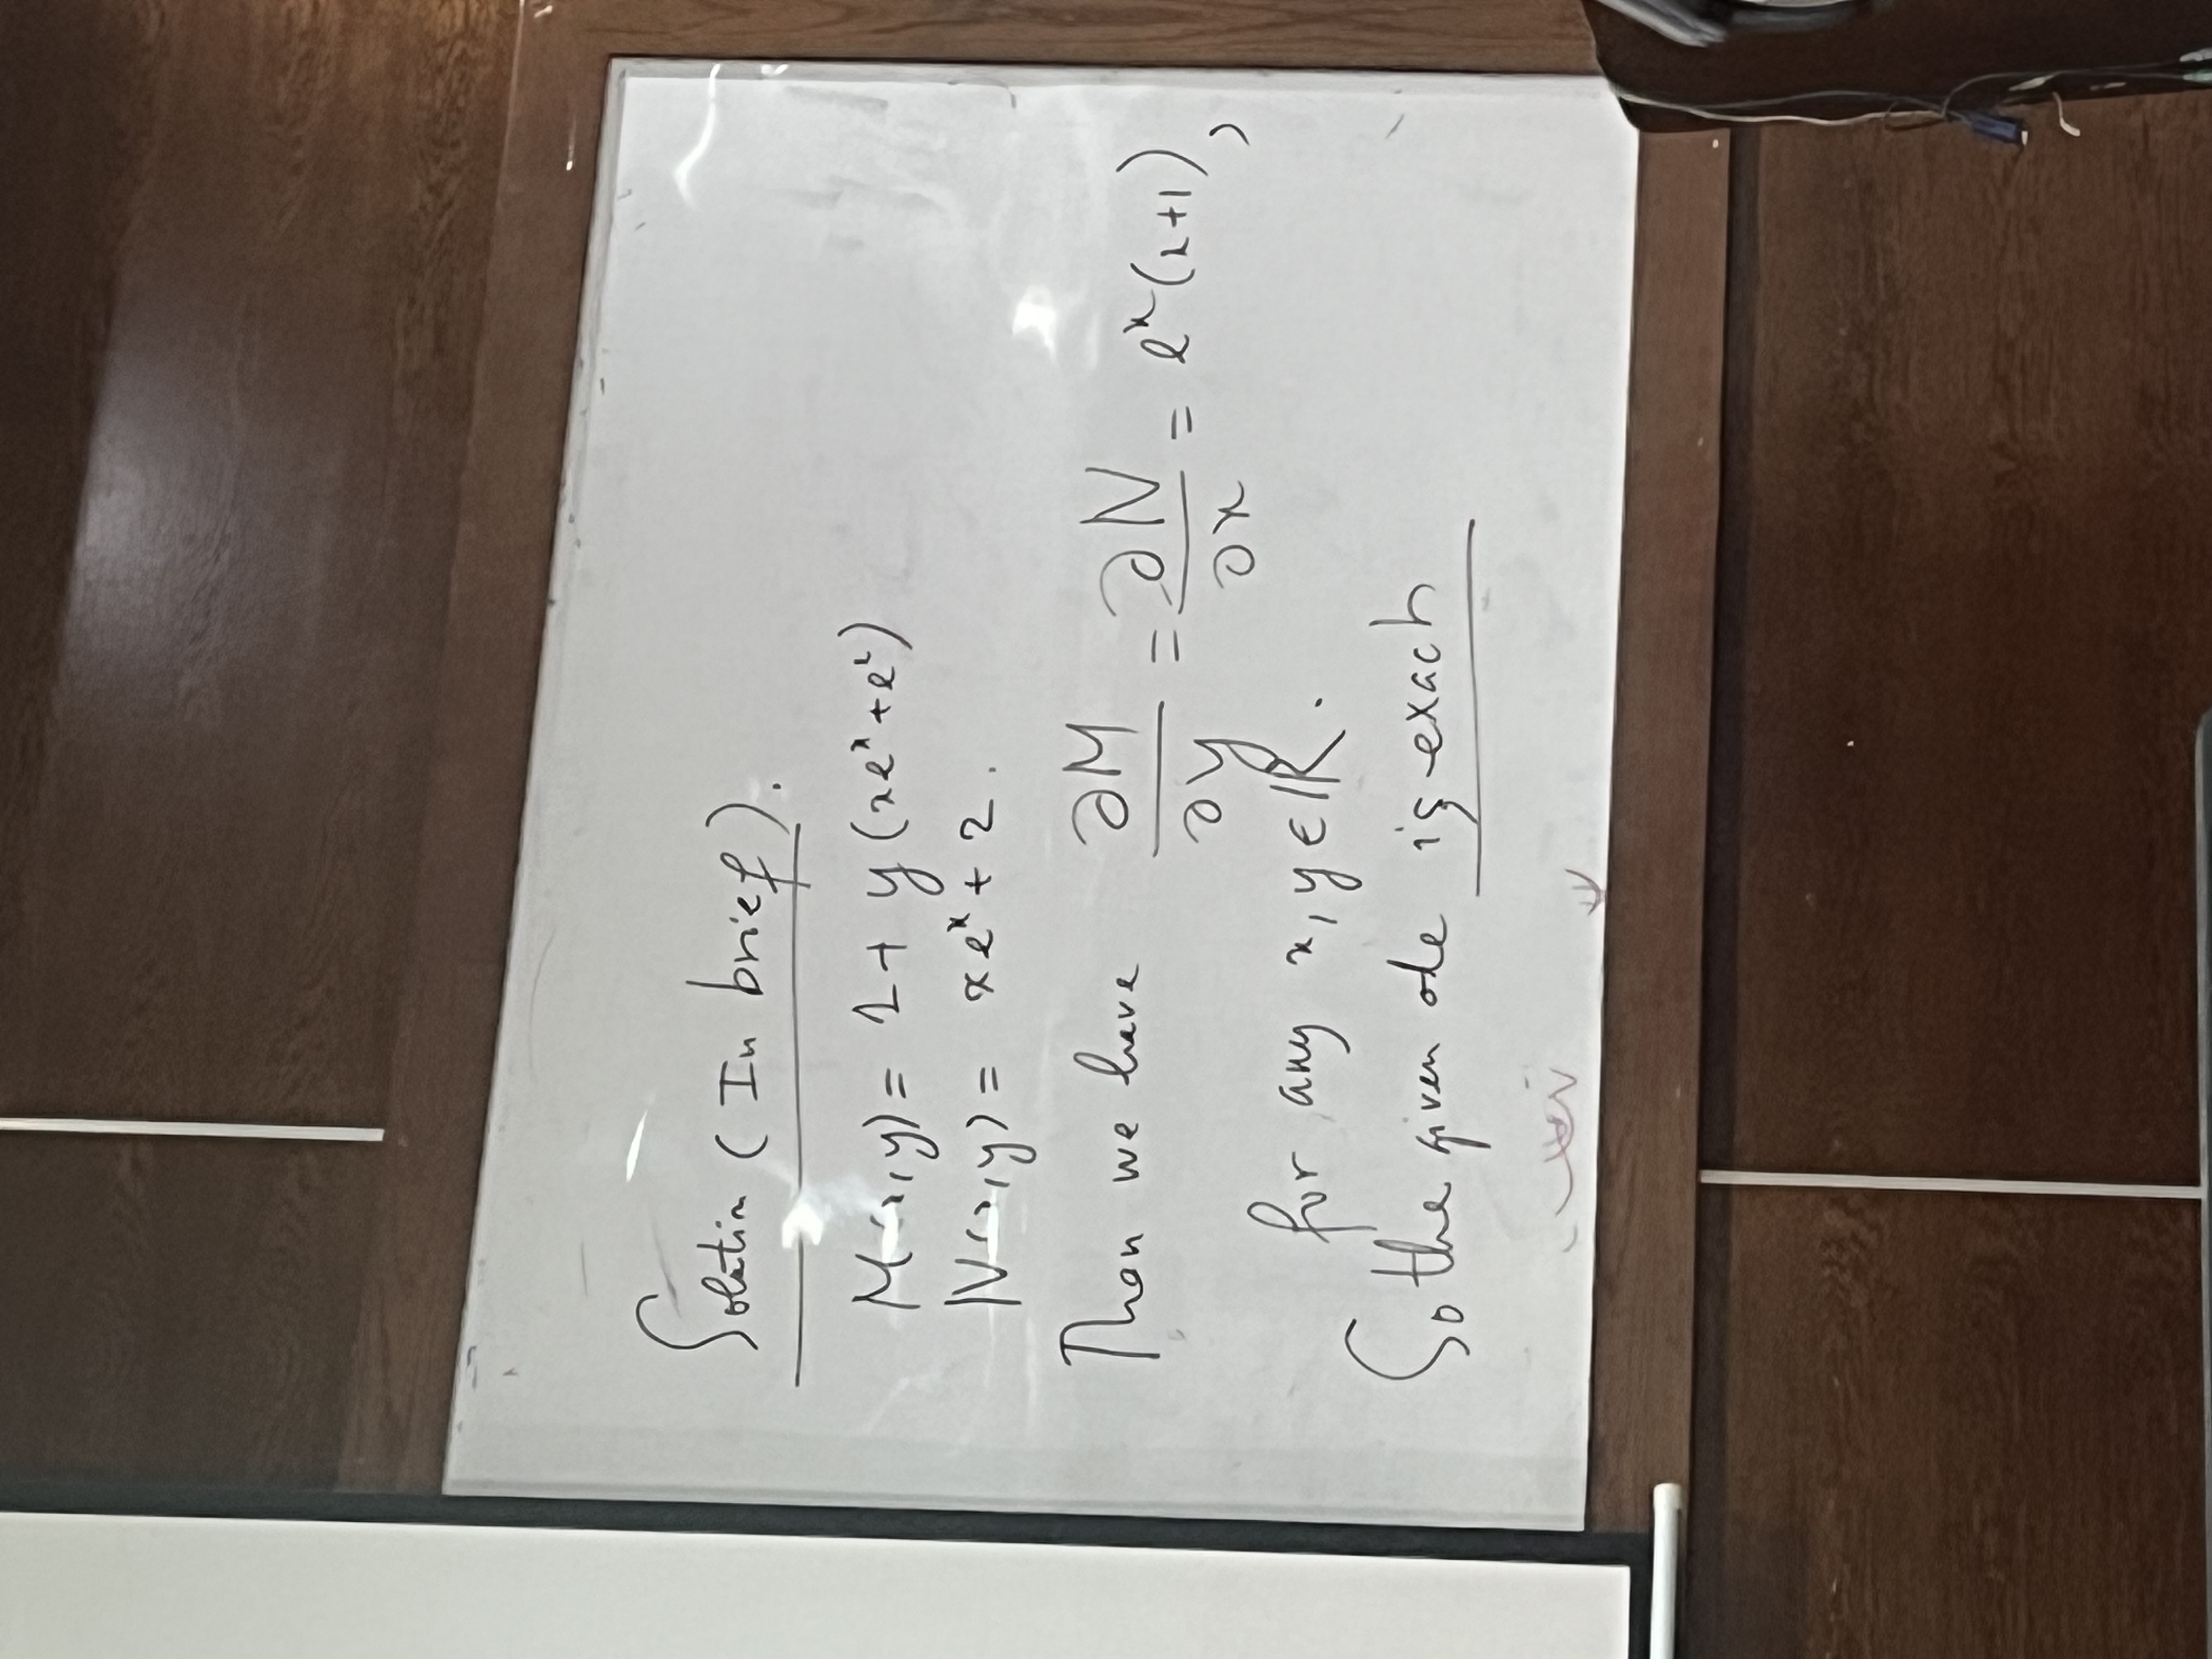 Solution (In brief).
M(x,y) = 1 + y(xeˣ+eˣ)
N(x,y) = xeˣ + 2.
Then we have ∂M/∂y = ∂N/∂x = eˣ(x+1),
for any x, y ∈ ℝ.
So the given ode is exact